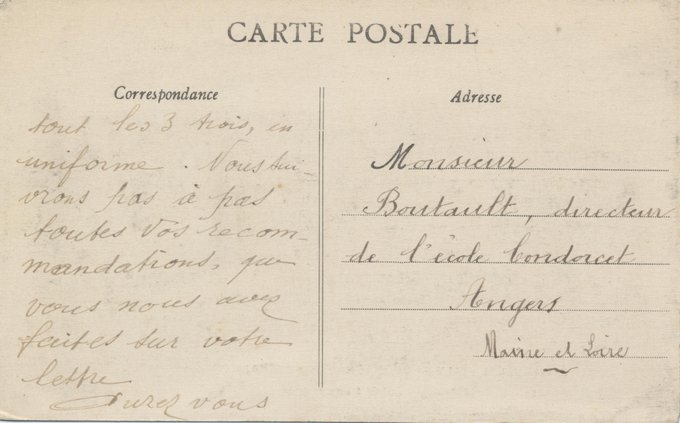 CARTE POSTALE
Correspondance
tout les 3 trois, en
uniforme. Nous sui-
vrons pas à pas
toutes vos recom-
mandations, que
vous nous avez
faites sur votre
lettre
vous
Adresse
Monsieur
Boutault, directeur
de l'école Condorcet
Angers
Maine et Loire